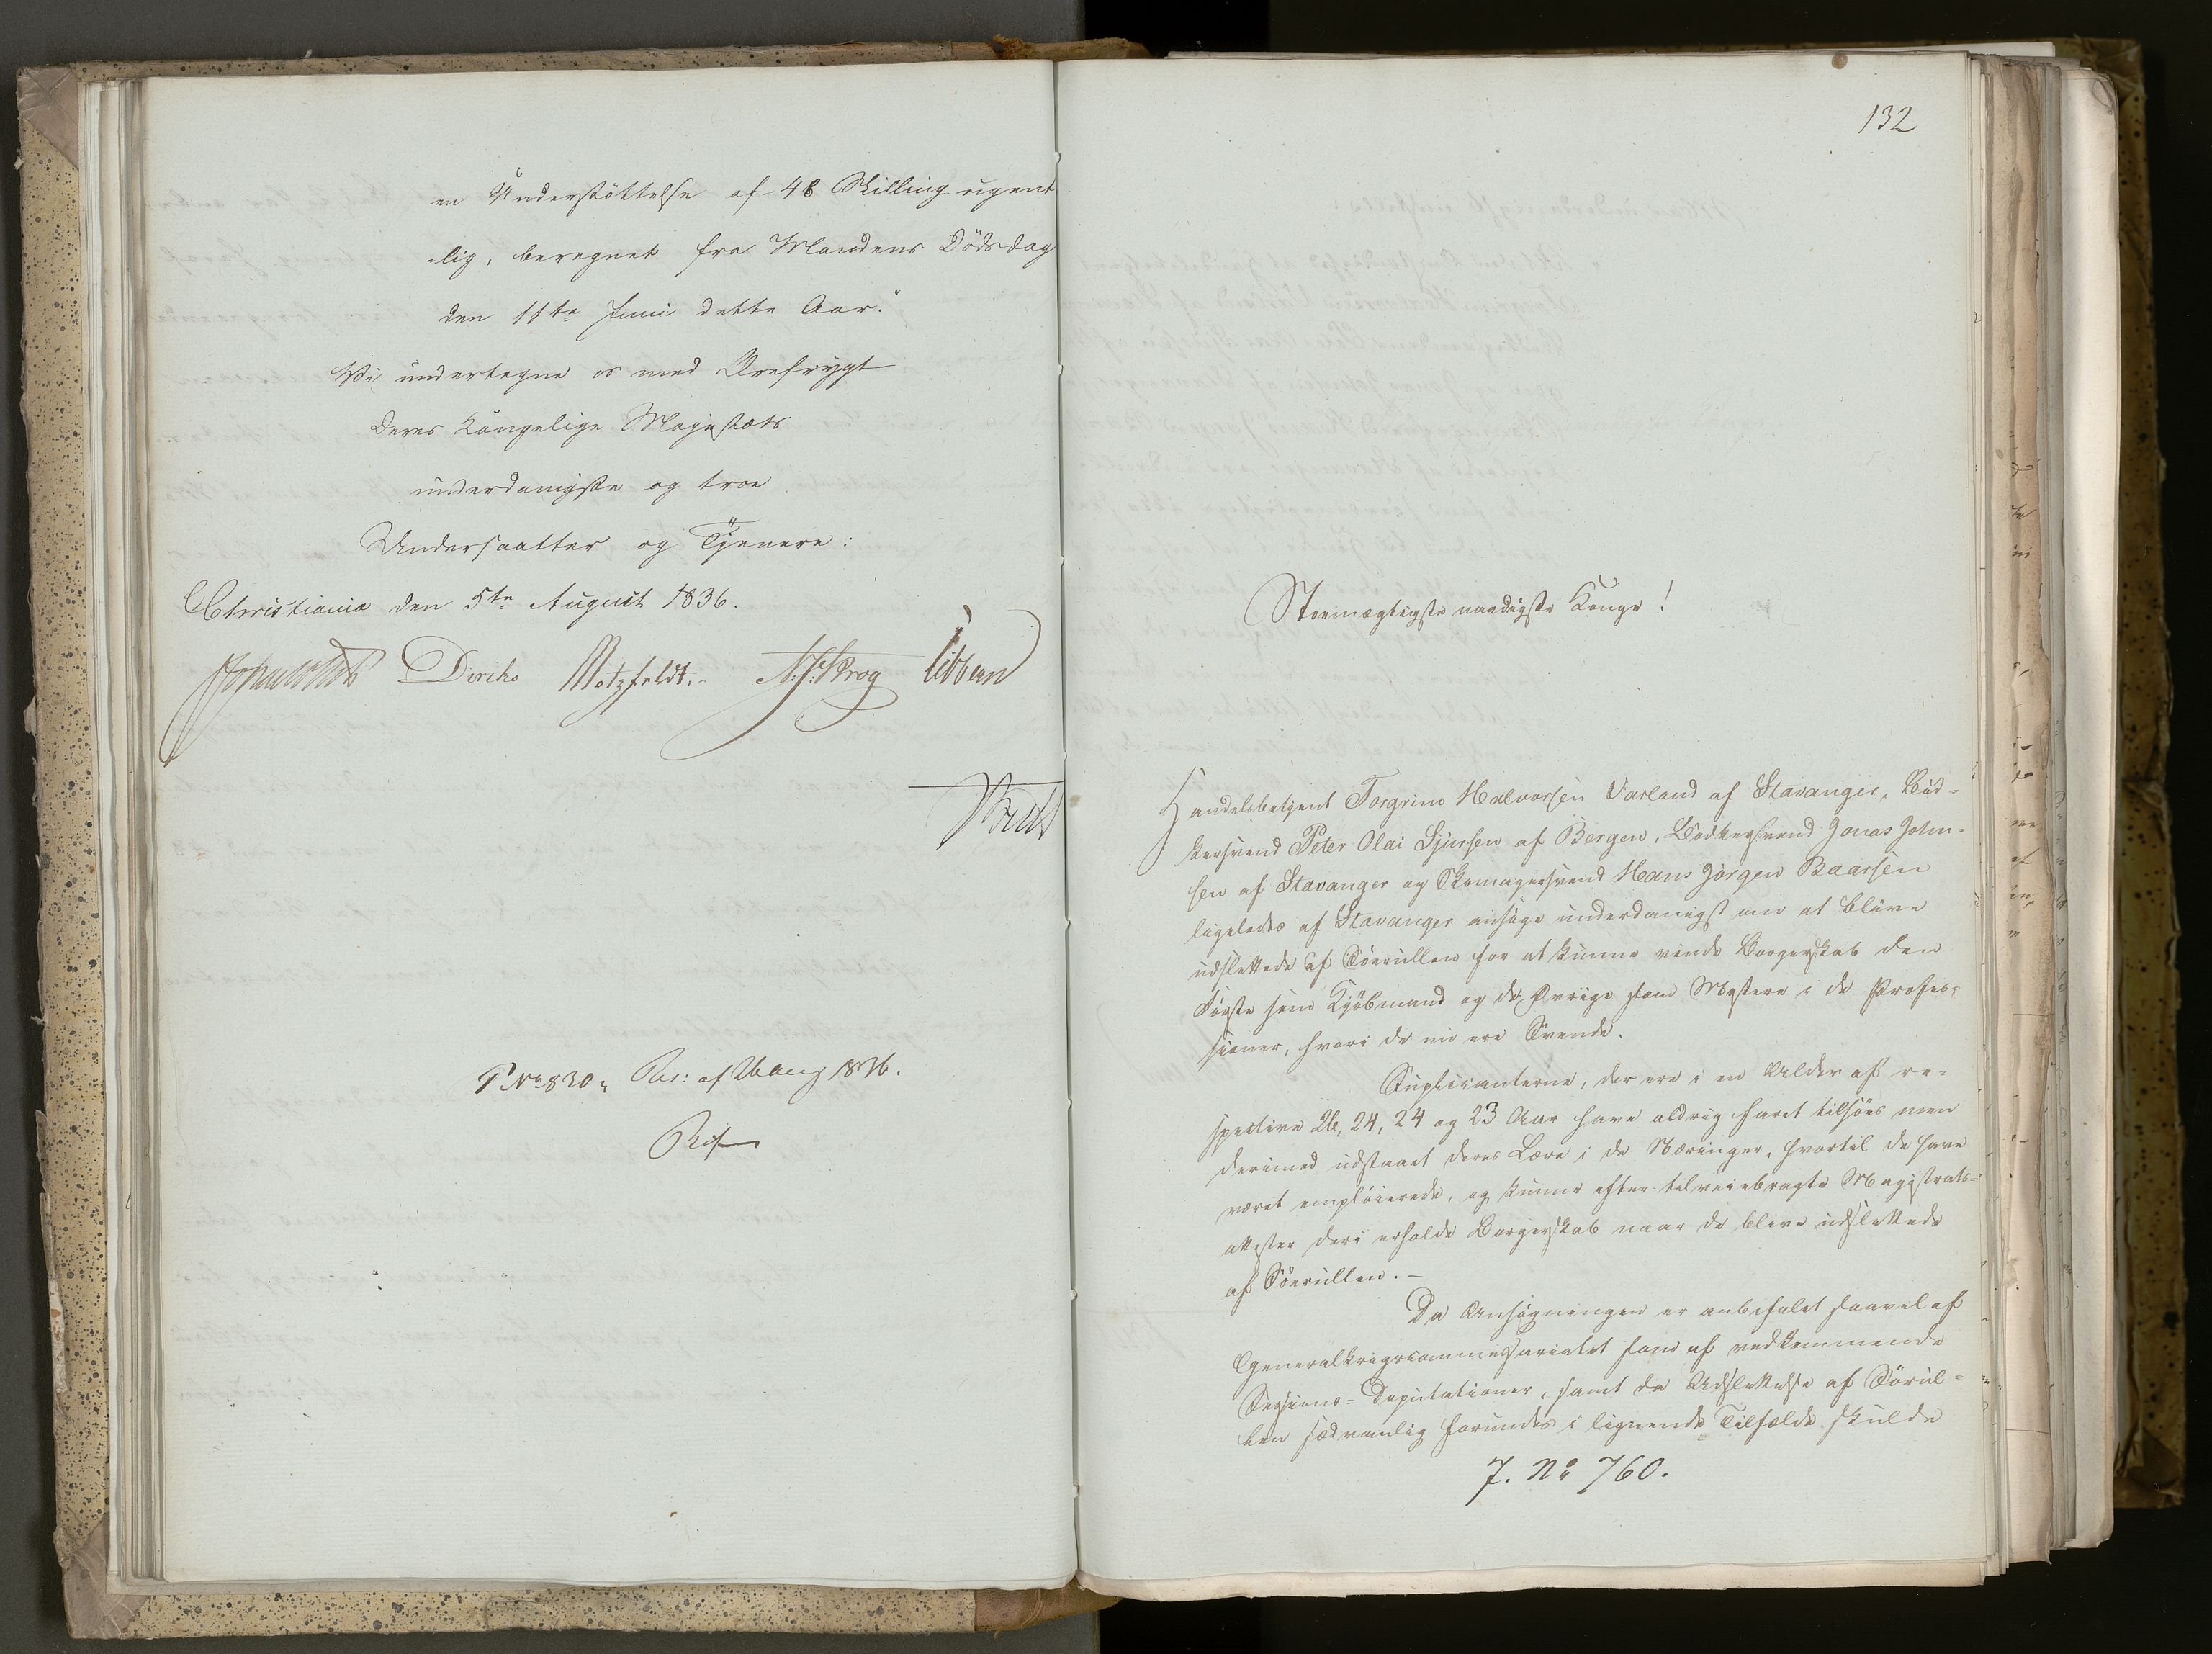 en Understöttelse af 48 Skilling ugent
-lig, beregnet fra Mandens Dödsdag
den 11te Juni dette Aar."
Vi undertegne os med Ærefrygt
Deres Kongelige Majestæts
underdanigste og troe
Undersaatter og Tjenere:
Christiania den 5te August 1836.
Diriks Motzfeldt.- N: J: Krog
P. No 830. Res: af 26 Aug 1836.
132
Stormægtigste naadigste Konge!
Handelsbetjent Torgrim Halvorsen Varland af Stavanger, Bød-
kersvend Peter Olai Sjursen af Bergen, Bødkersvend Jonas John-
sen af Stavanger og Skomagersvend Hans Jørgen Baarsen
ligeledes af Stavanger ansøge underdanigst om at blive
udslettede af Söerullen for at kunne vinde Borgerskab den
Første som Kjöbmand og de Øvrige som Mestere i de Profes-
sioner, hvori de nu ere Svende.
Suplicanterne, der ere i en Alder af re-
spective 26, 24, 24 og 23 Aar have aldrig faret tilsöes men
derimod udstaaet deres Lære i de Næringer, hvortil de have
været emploierede, og kunne efter tilveiebragte Magistrats-
attester deri erholde Borgerskab naar de blive udslettede
af Söerullen.-
Da Ansøgningen er anbefalet saavel af
Generalkrigscommissariatet som af vedkommende
Sessions-Deputationer, samt da Udslettelse af Sörul-
len sædvanlig forundes i lignende Tilfælde skulde
7. No 760.